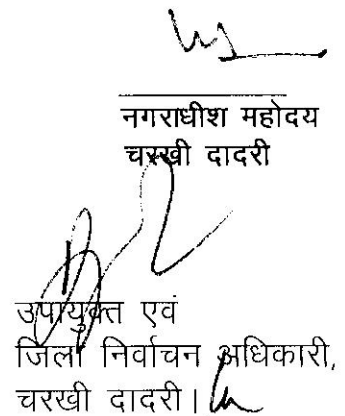 नगराधीश महोदय
चरखी दादरी
उपायुक्त एवं
जिला निर्वाचन अधिकारी,
चरखी दादरी।